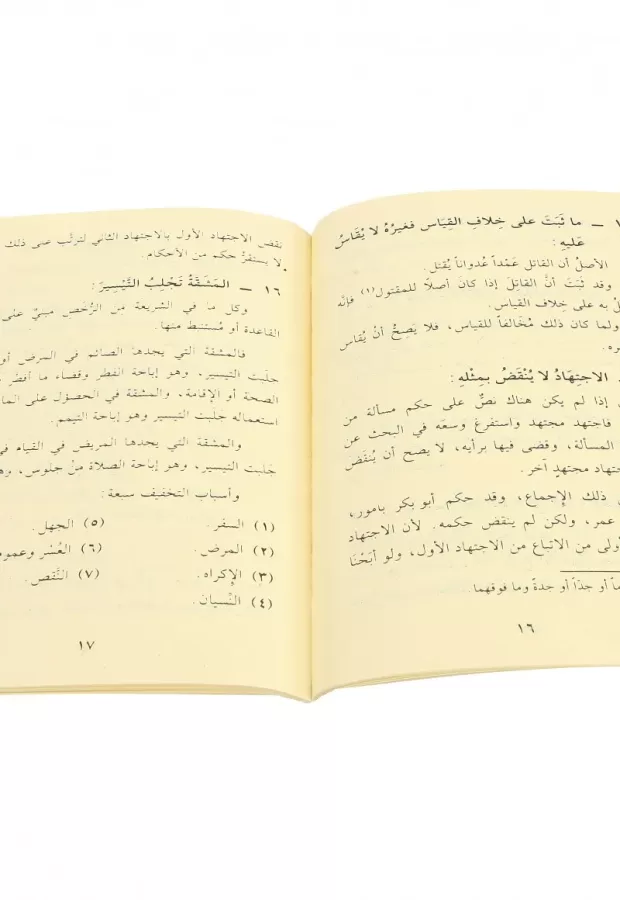 ما ثَبَتَ على خِلافِ القِيَاسِ فغيرُهُ لا يُقَاسُ
عَلَيهِ:
الأصلُ أن القاتل عَمْداً عُدواناً يُقتل.
وقد ثبَتَ أنَّ القاتِلَ إذا كانَ أصلاً للمقتول(١) فإنَّه
به على خلاف القياس.
ولما كان ذلك مُخَالفاً للقياس، فلا يَصِحُّ أنْ يُقَاسَ
الاجتِهَادُ لا يُنْقَضُ بِمِثْلِهِ:
إذا لم يكن هناك نصٌّ على حكم مسألة من
فاجتهد مجتهد واستفرغ وسعَه في البحث عن
المسألة، وقضى فيها برأيه، لا يصح أن يُنقَضَ
مجتهدٍ آخر.
ذلك الإجماع، وقد حكم أبو بكر بأمور،
عمر، ولكن لم ينقض حكمه. لأن الاجتهاد
من الاتباع من الاجتهاد الأول، ولو أبَحْنَا
أو جدّاً أو جدةً وما فوقهما.
١٦
نقض الاجتهاد الأول بالاجتهاد الثاني لترتَّب على ذلك
لا يستقرَّ حكم من الأحكام.
١٦ – المَشقَّةُ تَجْلِبُ التَّيْسِيرَ:
وكل ما في الشريعة من الرُّخَص مبنيٌّ على
القاعدة أو مُستنبط منها.
فالمشقة التي يجدها الصائم في المرض أو
جلَبت التيسير، وهو إباحة الفطر وقضاء ما أفطر
الصحة أو الإقامة، والمشقة في الحصول على
استعماله جَلَبت التيسير وهو إباحة التيمم.
والمشقة التي يجدها المريض في القيام في
جَلَبت التيسير، وهو إباحة الصلاة منْ جلوس،
وأسباب التخفيف سبعة:
(١) السفر. (٥) الجهل.
(٢) المرض. (٦) العُسْر
(٣) الإكراه. (٧) النَّقص.
(٤) النِّسيان.
١٧